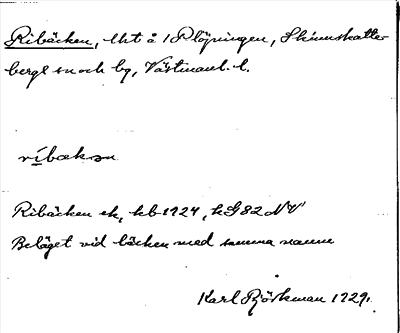 Ribäcken, lht å 1 Plöjningen, Skinnskatte-
bergs sn och by, Västmanl. l.
ribækən
Ribäcken ek, kb 1924, hG82NV
Beläget vid bäcken med samma namn
Karl Björkman 1929.